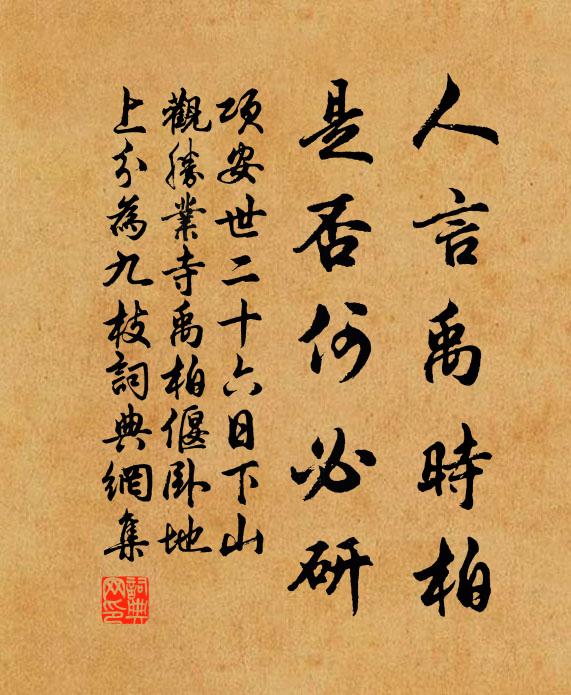 人言禹時柏
是否何必研
項安世二十六日下山
觀勝業寺禹柏偃卧地
上分為九枝詞典網集
詞典網印